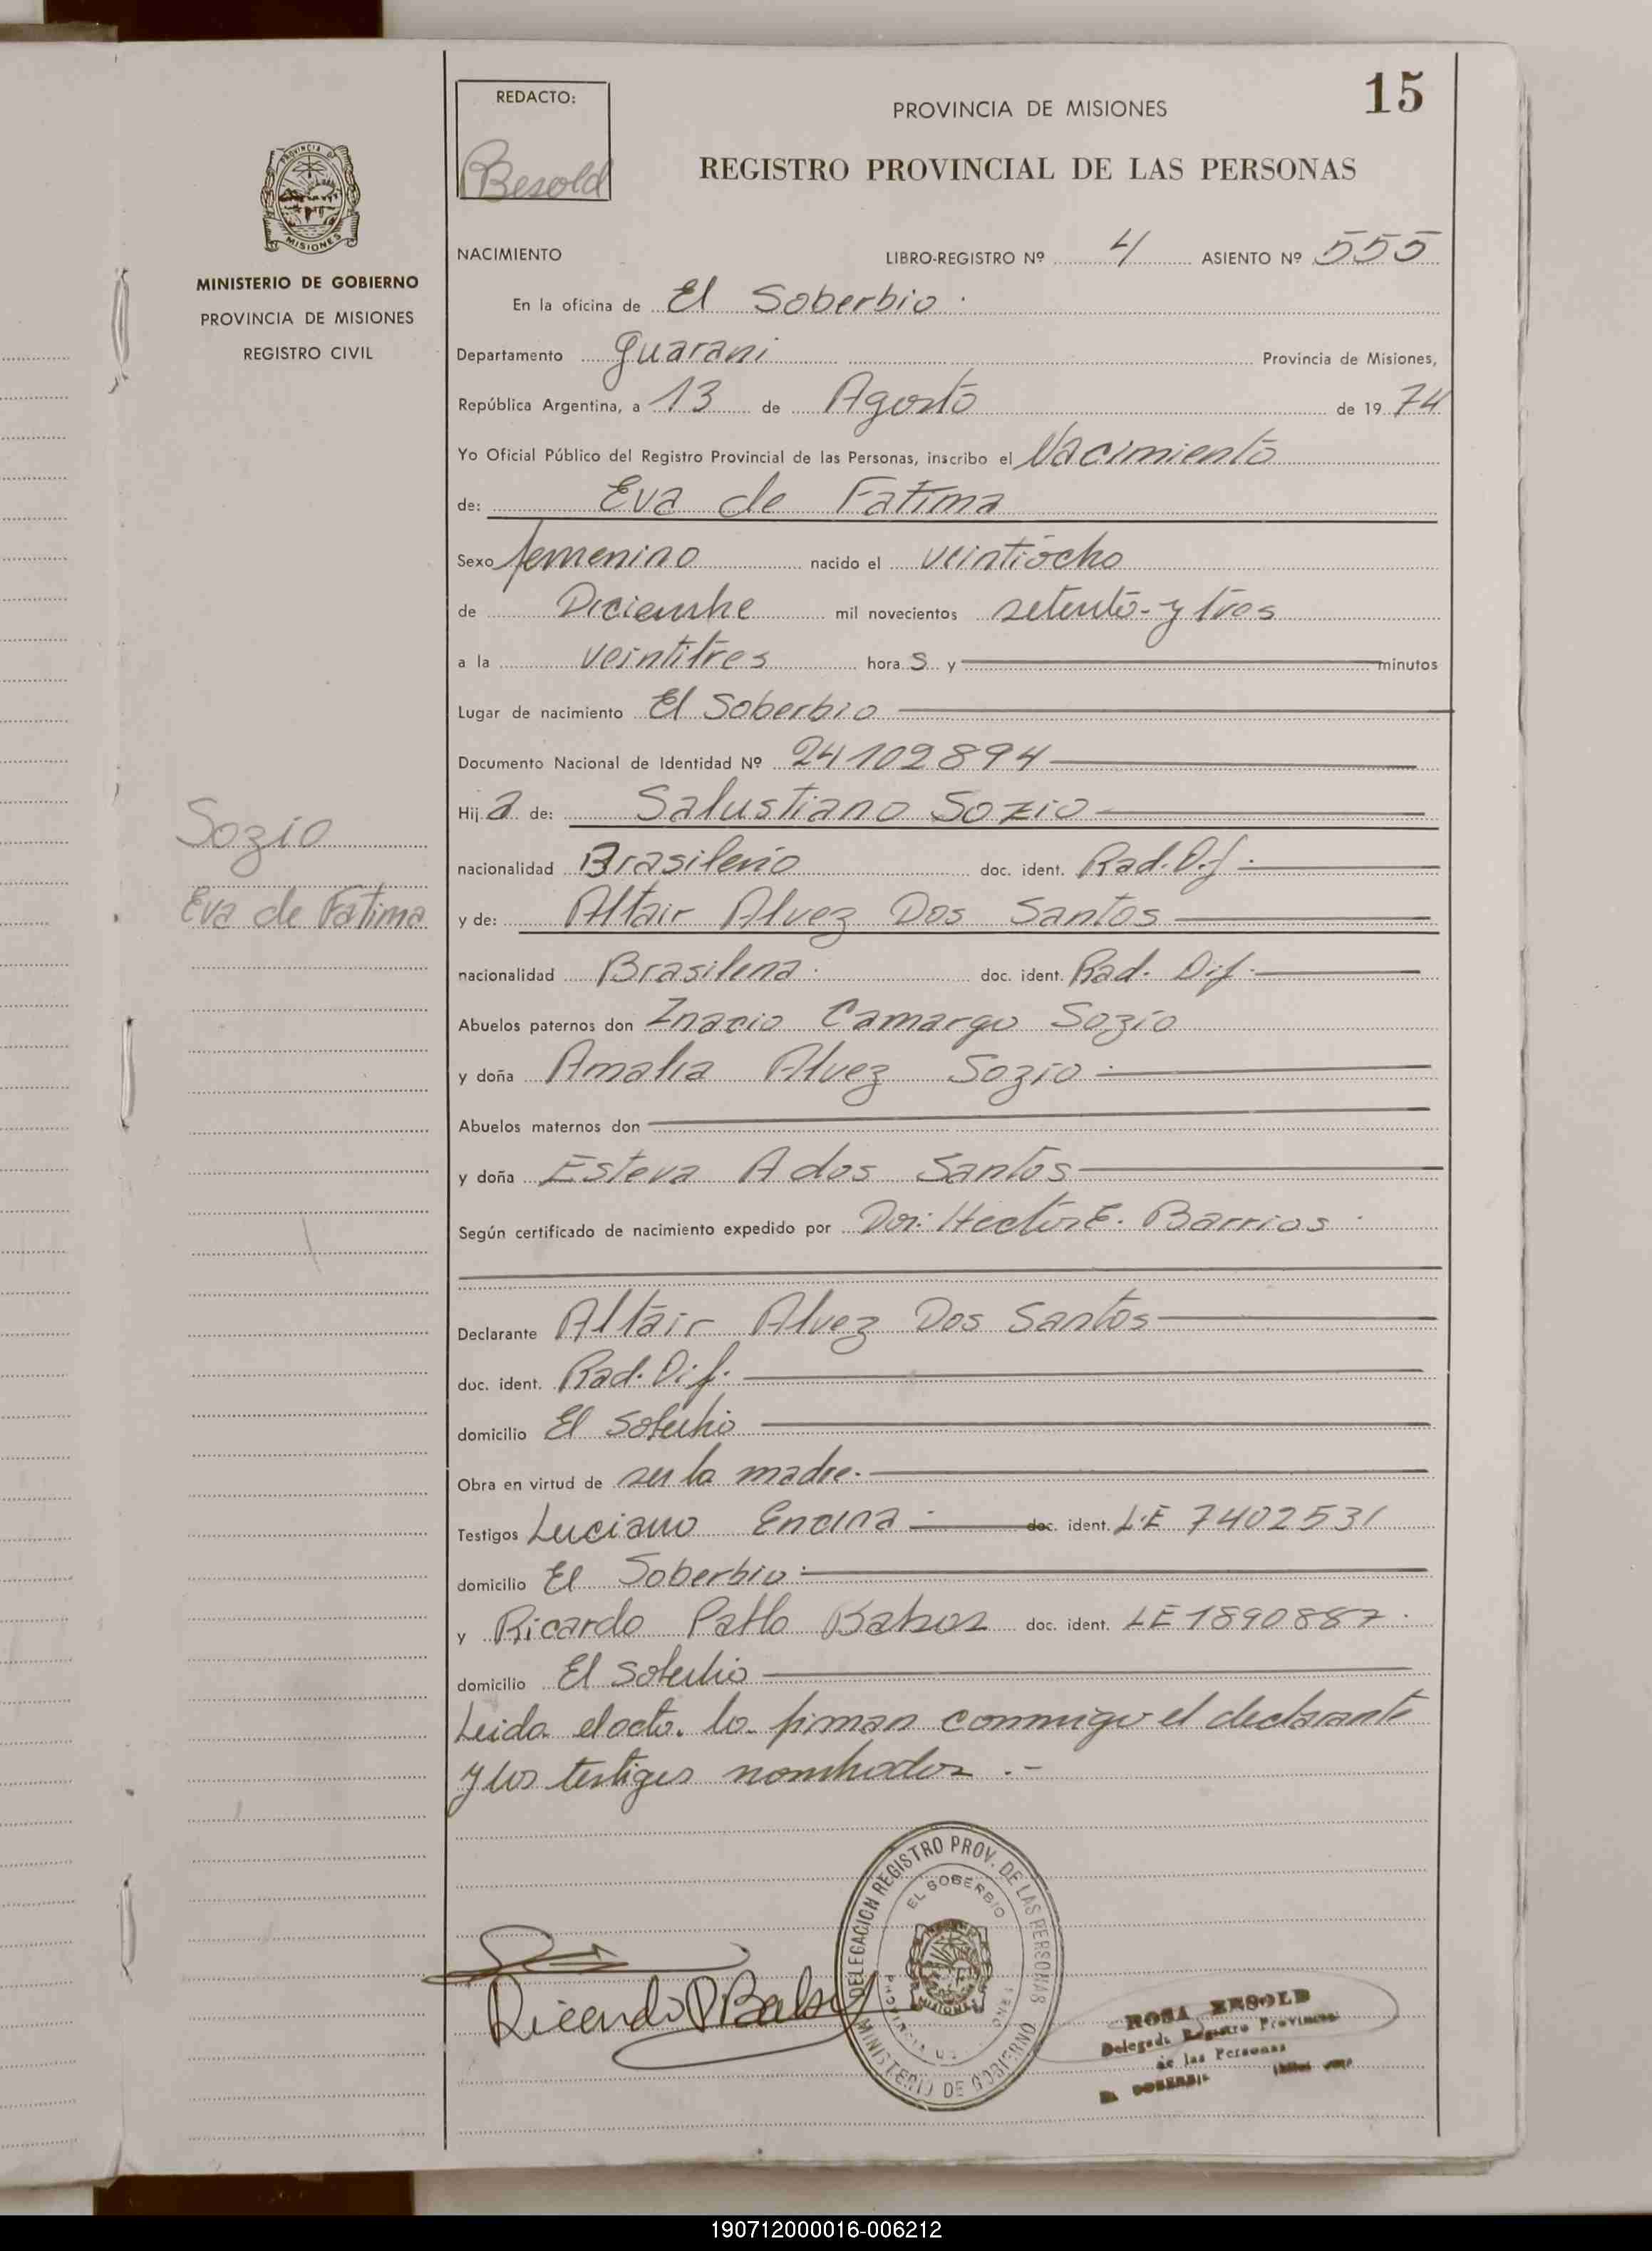 15
REDACTO:
Besold
PROVINCIA DE MISIONES
REGISTRO PROVINCIAL DE LAS PERSONAS
PROVINCIA DE
MISIONES
MINISTERIO DE GOBIERNO
PROVINCIA DE MISIONES
REGISTRO CIVIL
NACIMIENTO LIBRO-REGISTRO Nº 4 ASIENTO Nº 555
En la oficina de El Soberbio.
Departamento Guarani Provincia de Misiones,
República Argentina, a 13 de Agosto de 19 74
Yo Oficial Público del Registro Provincial de las Personas, inscribo el Nacimiento
de: Eva de Fatima
Sexo femenino nacido el veintiocho
de Diciembre mil novecientos setenta y tres
a la veintitres hora s y minutos
Lugar de nacimiento El Soberbio
Documento Nacional de Identidad Nº 24102894
Hij a de: Salustiano Sozio
Sozio
Eva de Fatima
nacionalidad Brasileño doc. ident. Rad. Dif.
y de: Altair Alvez Dos Santos
nacionalidad Brasilena. doc. ident. Rad. Dif.
Abuelos paternos don Inacio Camargo Sozio
y doña Amalia Alvez Sozio.
Abuelos maternos don
y doña Esteva A dos Santos
Según certificado de nacimiento expedido por Dor: Hector E. Barrios.
Declarante Altair Alvez Dos Santos
doc. ident. Rad. Dif.
domicilio El Soberbio
Obra en virtud de ser la madre.
Testigos Luciano Encina doc. ident. L.E 7402531
domicilio El Soberbio.
y Ricardo Pablo doc. ident. LE 1890887.
domicilio El Soberbio
Leida el acto. lo firman conmigo el declarante
y los testigos nombrados .-
DELEGACION REGISTRO PROV. DE LAS PERSONAS
EL SOBERBIO
MISIONES
MINISTERIO DE GOBIERNO
ROSA BESOLD
Delegada Registro Provincial
de las Personas
EL SOBERBIO
190712000016-006212